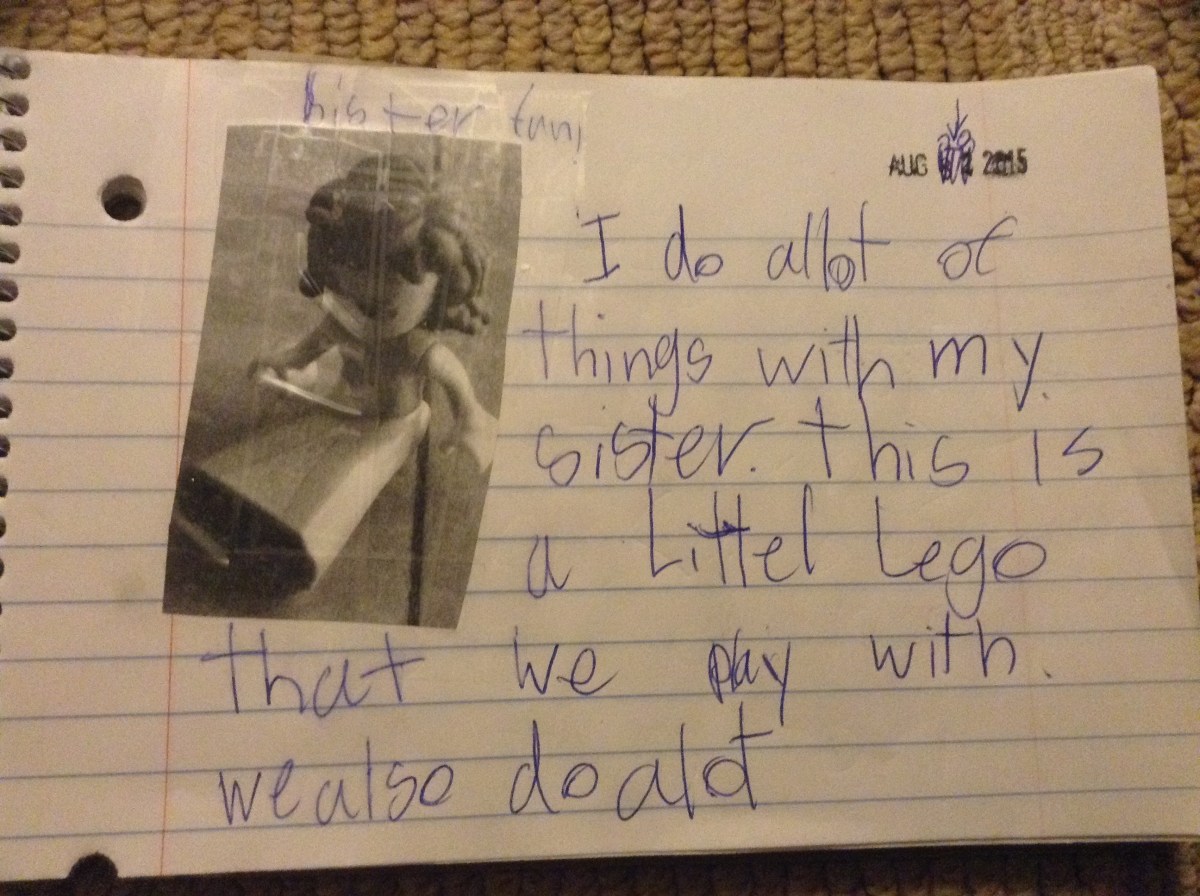 sister fun
AUG 2015
I do allot of
things with my
sister. this is
a Littel Lego
that we play with.
we also do alot